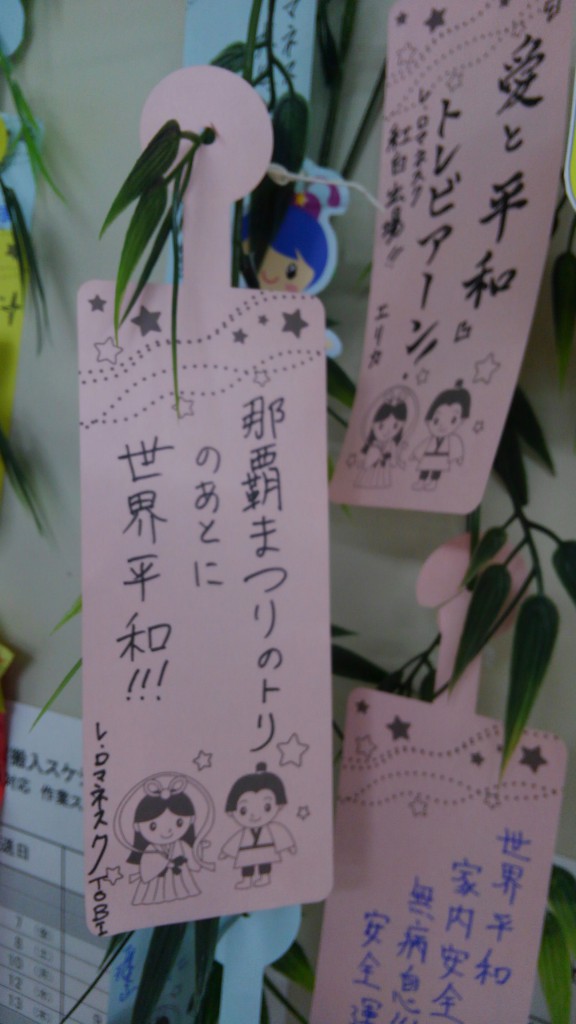 那覇まつりのトリ
のあとに
世界平和!!!
レ・ロマネスクTOBI
愛と平和
トレビアーン!
レ・ロマネスク
紅白出場!!
エリカ
世界平和
家内安全
無病息
安全運
搬入スケ
対応 作業ス